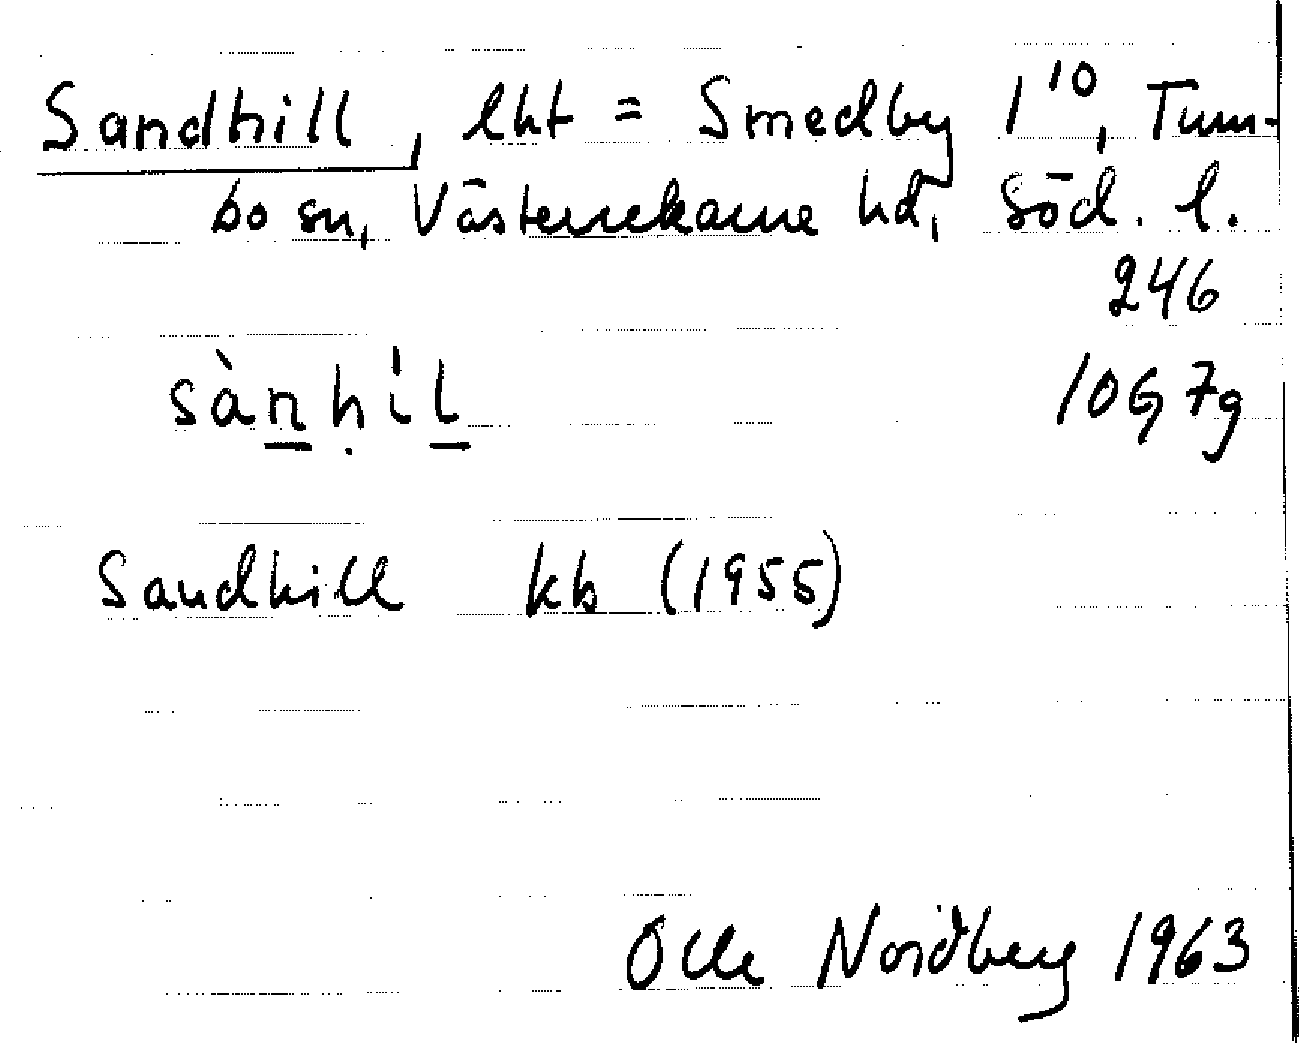 Sandhill, lht = Smedby 1¹⁰, Tum-
bo sn, Västerrekarne hd, Söd. l.
246
sàn̲ḥìl̲ 10G 7g
Sandhill kb (1955)
Olle Nordberg 1963